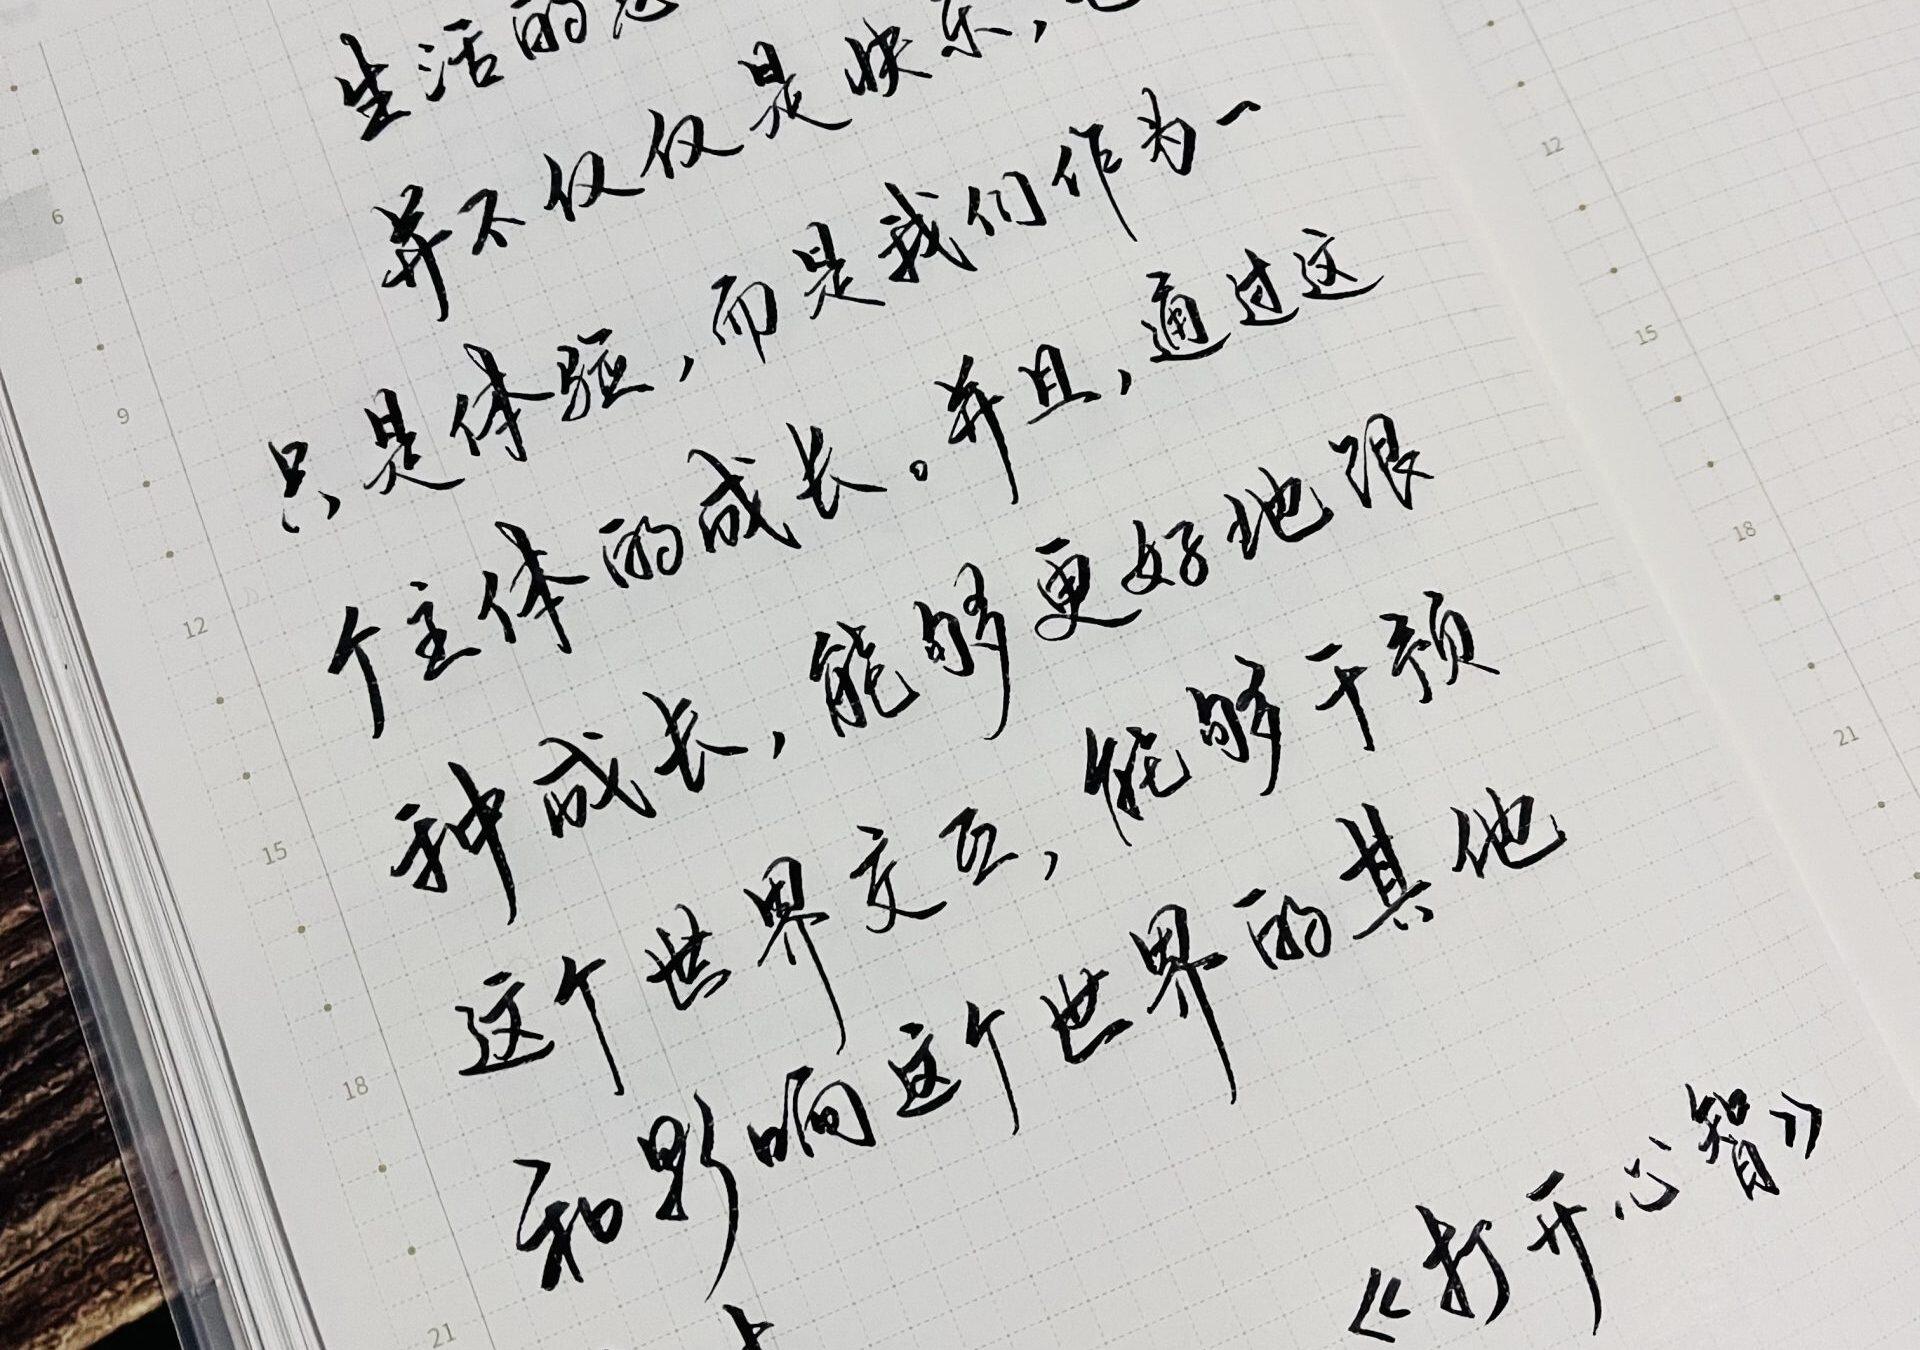 生活的意
并不仅仅是快乐，也
只是体验，而是我们作为一
个主体的成长。并且，通过这
种成长，能够更好地跟
这个世界交互，能够干预
和影响这个世界的其他
《打开心智》
6
9
12
15
18
21
12
15
18
21